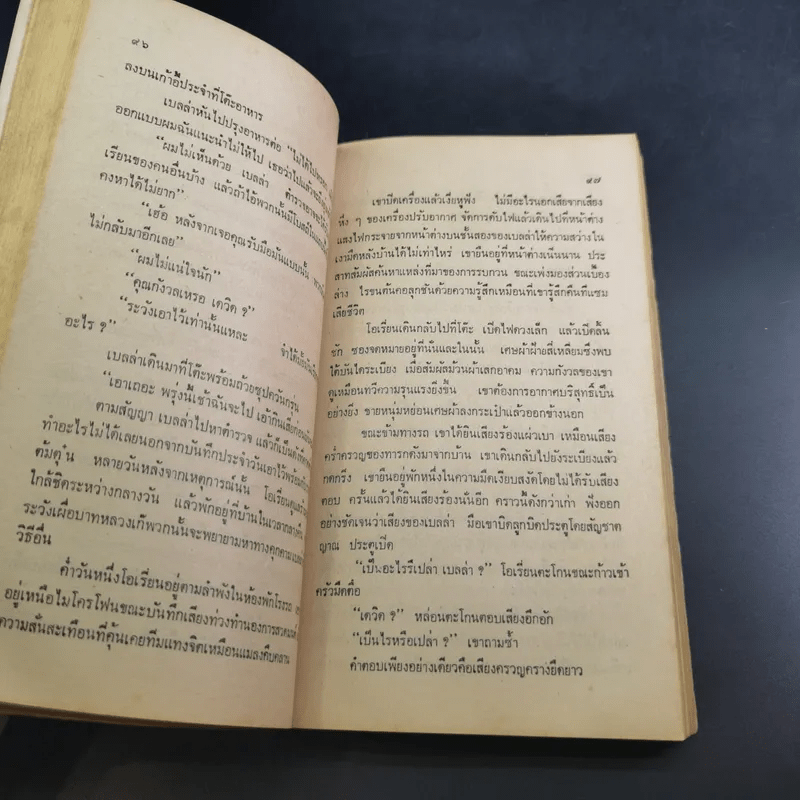 ๙๖
ลงบนเก้าอี้ประจำที่โต๊ะอาหาร
เบลล่าหันไปปรุงอาหารต่อ “ไม่ได้
ออกแบบผมฉันแนะนำไม่ให้ไป เธอว่าไปแล้วจะ
“ผมไม่เห็นด้วย เบลล่า ตำรวจอาจจะ
เรียนของคนอื่นบ้าง แล้วถ้าไอ้พวกนั้นมี
คงหาได้ไม่ยาก”
“เฮ้อ หลังจากเจอคุณรับมือมันแบบนั้น
ไม่กลับมาอีกเลย”
“ผมไม่แน่ใจนัก”
“คุณกังวลเหรอ เดวิด ?”
“ระวังเอาไว้เท่านั้นแหละ
อะไร ?”
เบลล่าเดินมาที่โต๊ะพร้อมถ้วยซุปควันกรุ่น
“เอาเถอะ พรุ่งนี้เช้าฉันจะไป เอ้ากินเสียก่อน
ตามสัญญา เบลล่าไปหาตำรวจ แล้วก็เป็นดัง
ทำอะไรไม่ได้เลยนอกจากบันทึกประจำวันเอาไว้พร้อม
ต้มตุ๋น หลายวันหลังจากเหตุการณ์นั้น โอเรียน
ใกล้ชิดระหว่างกลางวัน แล้วพักอยู่ที่บ้านในเวลากลางคืน
ระวังเผื่อบาทหลวงเก๊พวกนั้นจะพยายามหาทางคุกคาม
วิธีอื่น
ค่ำวันหนึ่งโอเรียนอยู่ตามลำพังในห้องพักโรงรถ
อยู่เหนือไมโครโฟนขณะบันทึกเสียงท่วงทำนองการสวด
ความสั่นสะเทือนที่คุ้นเคยทิ่มแทงจิตเหมือนแมลงคืบคลาน
๙๗
เขาปิดเครื่องแล้วเงี่ยหูฟัง ไม่มีอะไรนอกเสียจากเสียง
หึ่ง ๆ ของเครื่องปรับอากาศ จัดการดับไฟแล้วเดินไปที่หน้าต่าง
แสงไฟกระจายจากหน้าต่างบนชั้นสองของเบลล่าให้ความสว่างใน
เงามืดหลังบ้านได้ไม่เท่าไหร่ เขายืนอยู่ที่หน้าต่างเนิ่นนาน ประ
สาทสัมผัสค้นหาแหล่งที่มาของการรบกวน ขณะเพ่งมองส่วนเบื้อง
ล่าง ไรขนต้นคอลุกชันด้วยความรู้สึกเหมือนที่เขารู้สึกคืนที่แซม
เสียชีวิต
โอเรียนเดินกลับไปที่โต๊ะ เปิดไฟดวงเล็ก แล้วเปิดลิ้น
ชัก ซองจดหมายอยู่ที่นั่นและในนั้น เศษผ้าฝ้ายสี่เหลี่ยมซึ่งพบ
ใต้บันไดระเบียง เมื่อสัมผัสม้วนผ้าเลกอาคม ความกังวลของเขา
ดูเหมือนทวีความรุนแรงยิ่งขึ้น เขาต้องการอากาศบริสุทธิ์เป็น
อย่างยิ่ง ชายหนุ่มหย่อนเศษผ้าลงกระเป๋าแล้วออกข้างนอก
ขณะข้ามทางรถ เขาได้ยินเสียงร้องแผ่วเบา เหมือนเสียง
คร่ำครวญของทารกดังมาจากบ้าน เขาเดินกลับไปยังระเบียงแล้ว
กดกริ่ง เขายืนอยู่พักหนึ่งในความมืดเงียบสงัดโดยไม่ได้รับเสียง
ตอบ ครั้นแล้วได้ยินเสียงร้องนั่นอีก คราวนี้ดังกว่าเก่า ฟังออก
อย่างชัดเจนว่าเสียงของเบลล่า มือเขาบิดลูกบิดประตูโดยสัญชาต
ญาณ ประตูเปิด
“เป็นอะไรรึเปล่า เบลล่า ?” โอเรียนตะโกนขณะก้าวเข้า
ครัวมืดตื๋อ
“เดวิด ?” หล่อนตะโกนตอบเสียงอึกอัก
“เป็นไรหรือเปล่า ?” เขาถามซ้ำ
คำตอบเพียงอย่างเดียวคือเสียงครวญครางยืดยาว